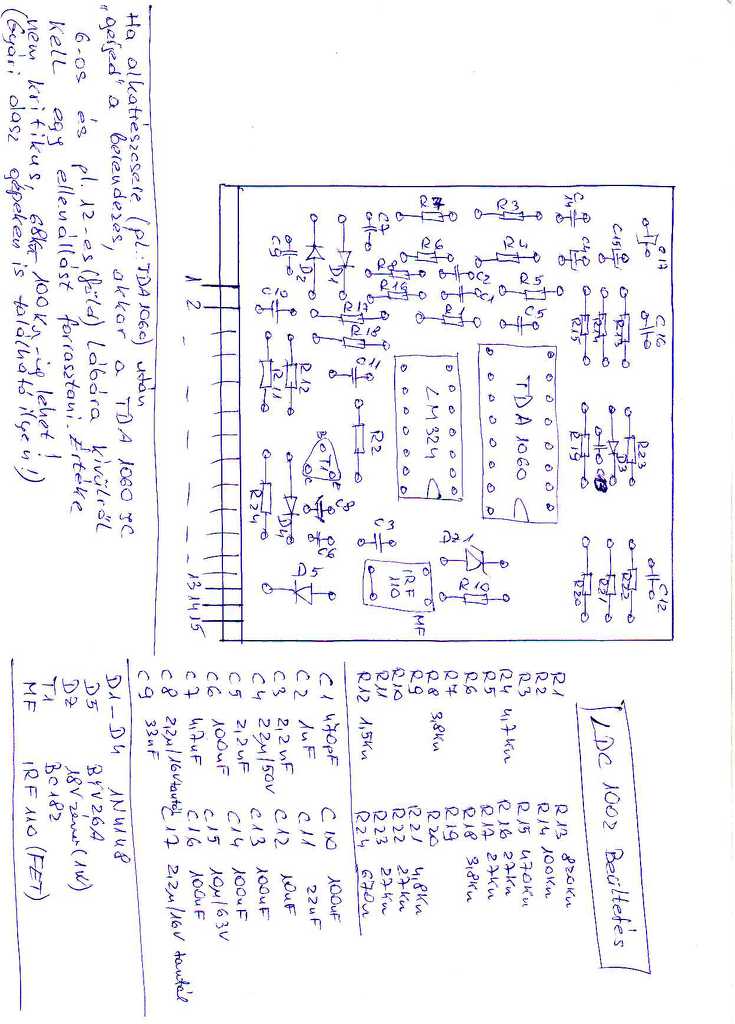 LDC 1002 Beültetés
R1
R2
R3
R4 4,7kΩ
R5
R6
R7
R8 3,8kΩ
R9
R10
R11
R12 1,5kΩ
R13 820kΩ
R14 100kΩ
R15 470kΩ
R16 27kΩ
R17 27kΩ
R18 3,8kΩ
R19
R20
R21 4,8kΩ
R22 27kΩ
R23 27kΩ
R24 670Ω
C1 470pF
C2 1uF
C3 2,2nF
C4 22µ/50V
C5 2,2nF
C6 100nF
C7 4,7nF
C8 2,2µ/16V tantál
C9 33nF
C10 100nF
C11 22nF
C12 10nF
C13 100nF
C14 100nF
C15 10µ/63V
C16 100nF
C17 2,2µ/16V tantál
D1-D4 1N4148
D5 BYV26A
DZ 18V zener (1W)
T1 BC182
MF IRF110 (FET)
C17
C16
C12
C15
R13
R14
R15
R23
D3
C13
R19
R22
R21
R20
C14
C4
R3
R4
R5
C5
TDA1060
DZ1
R10
MF
R7
R6
C2
C1
R1
R8
R16
LM324
IRF
110
C7
R17
R18
C11
R2
C3
D1
D2
C9
C10
R12
R11
T1
C8
C6
D4
R24
D5
1
2
13 14 15
Ha alkatrészcsere (pl.: TDA1060) után
„gerjed" a berendezés, akkor a TDA 1060 IC
6-os és pl. 12-es (föld) lábára kívülről
kell egy ellenállást forrasztani. Értéke
nem kritikus, 68kΩ 100kΩ-ig lehet!
(Gyári olasz gépeken is található ilyen!)